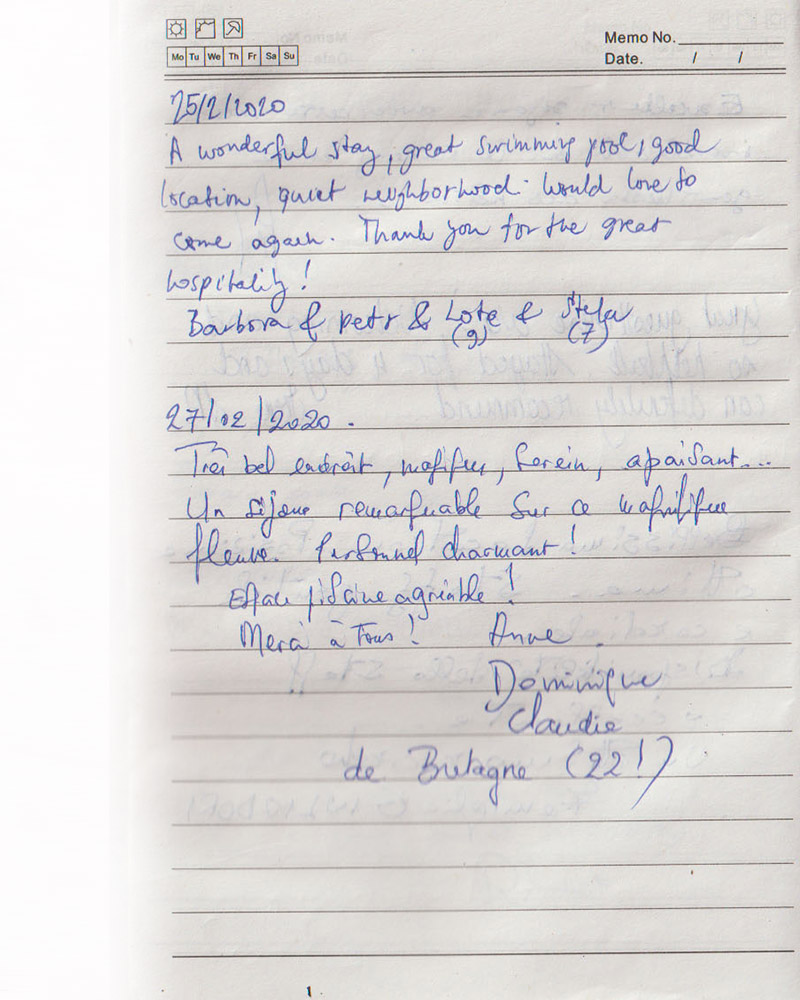 Mo Tu We Th Fr Sa Su
Memo No.
Date. / /
25/2/2020
A wonderful stay, great swimming pool, good
location, quiet neighborhood. Would love to
come again. Thank you for the great
hospitality!
Barbora & Petr & Lote & Stela
(9) (7)
27/02/2020.
Très bel endroit, magnifique, serein, apaisant...
Un séjour remarquable sur ce magnifique
fleuve. Personnel charmant!
Espace piscine agréable!
Merci à Tous! Anne.
Dominique
Claudie
de Bretagne (22!)
1